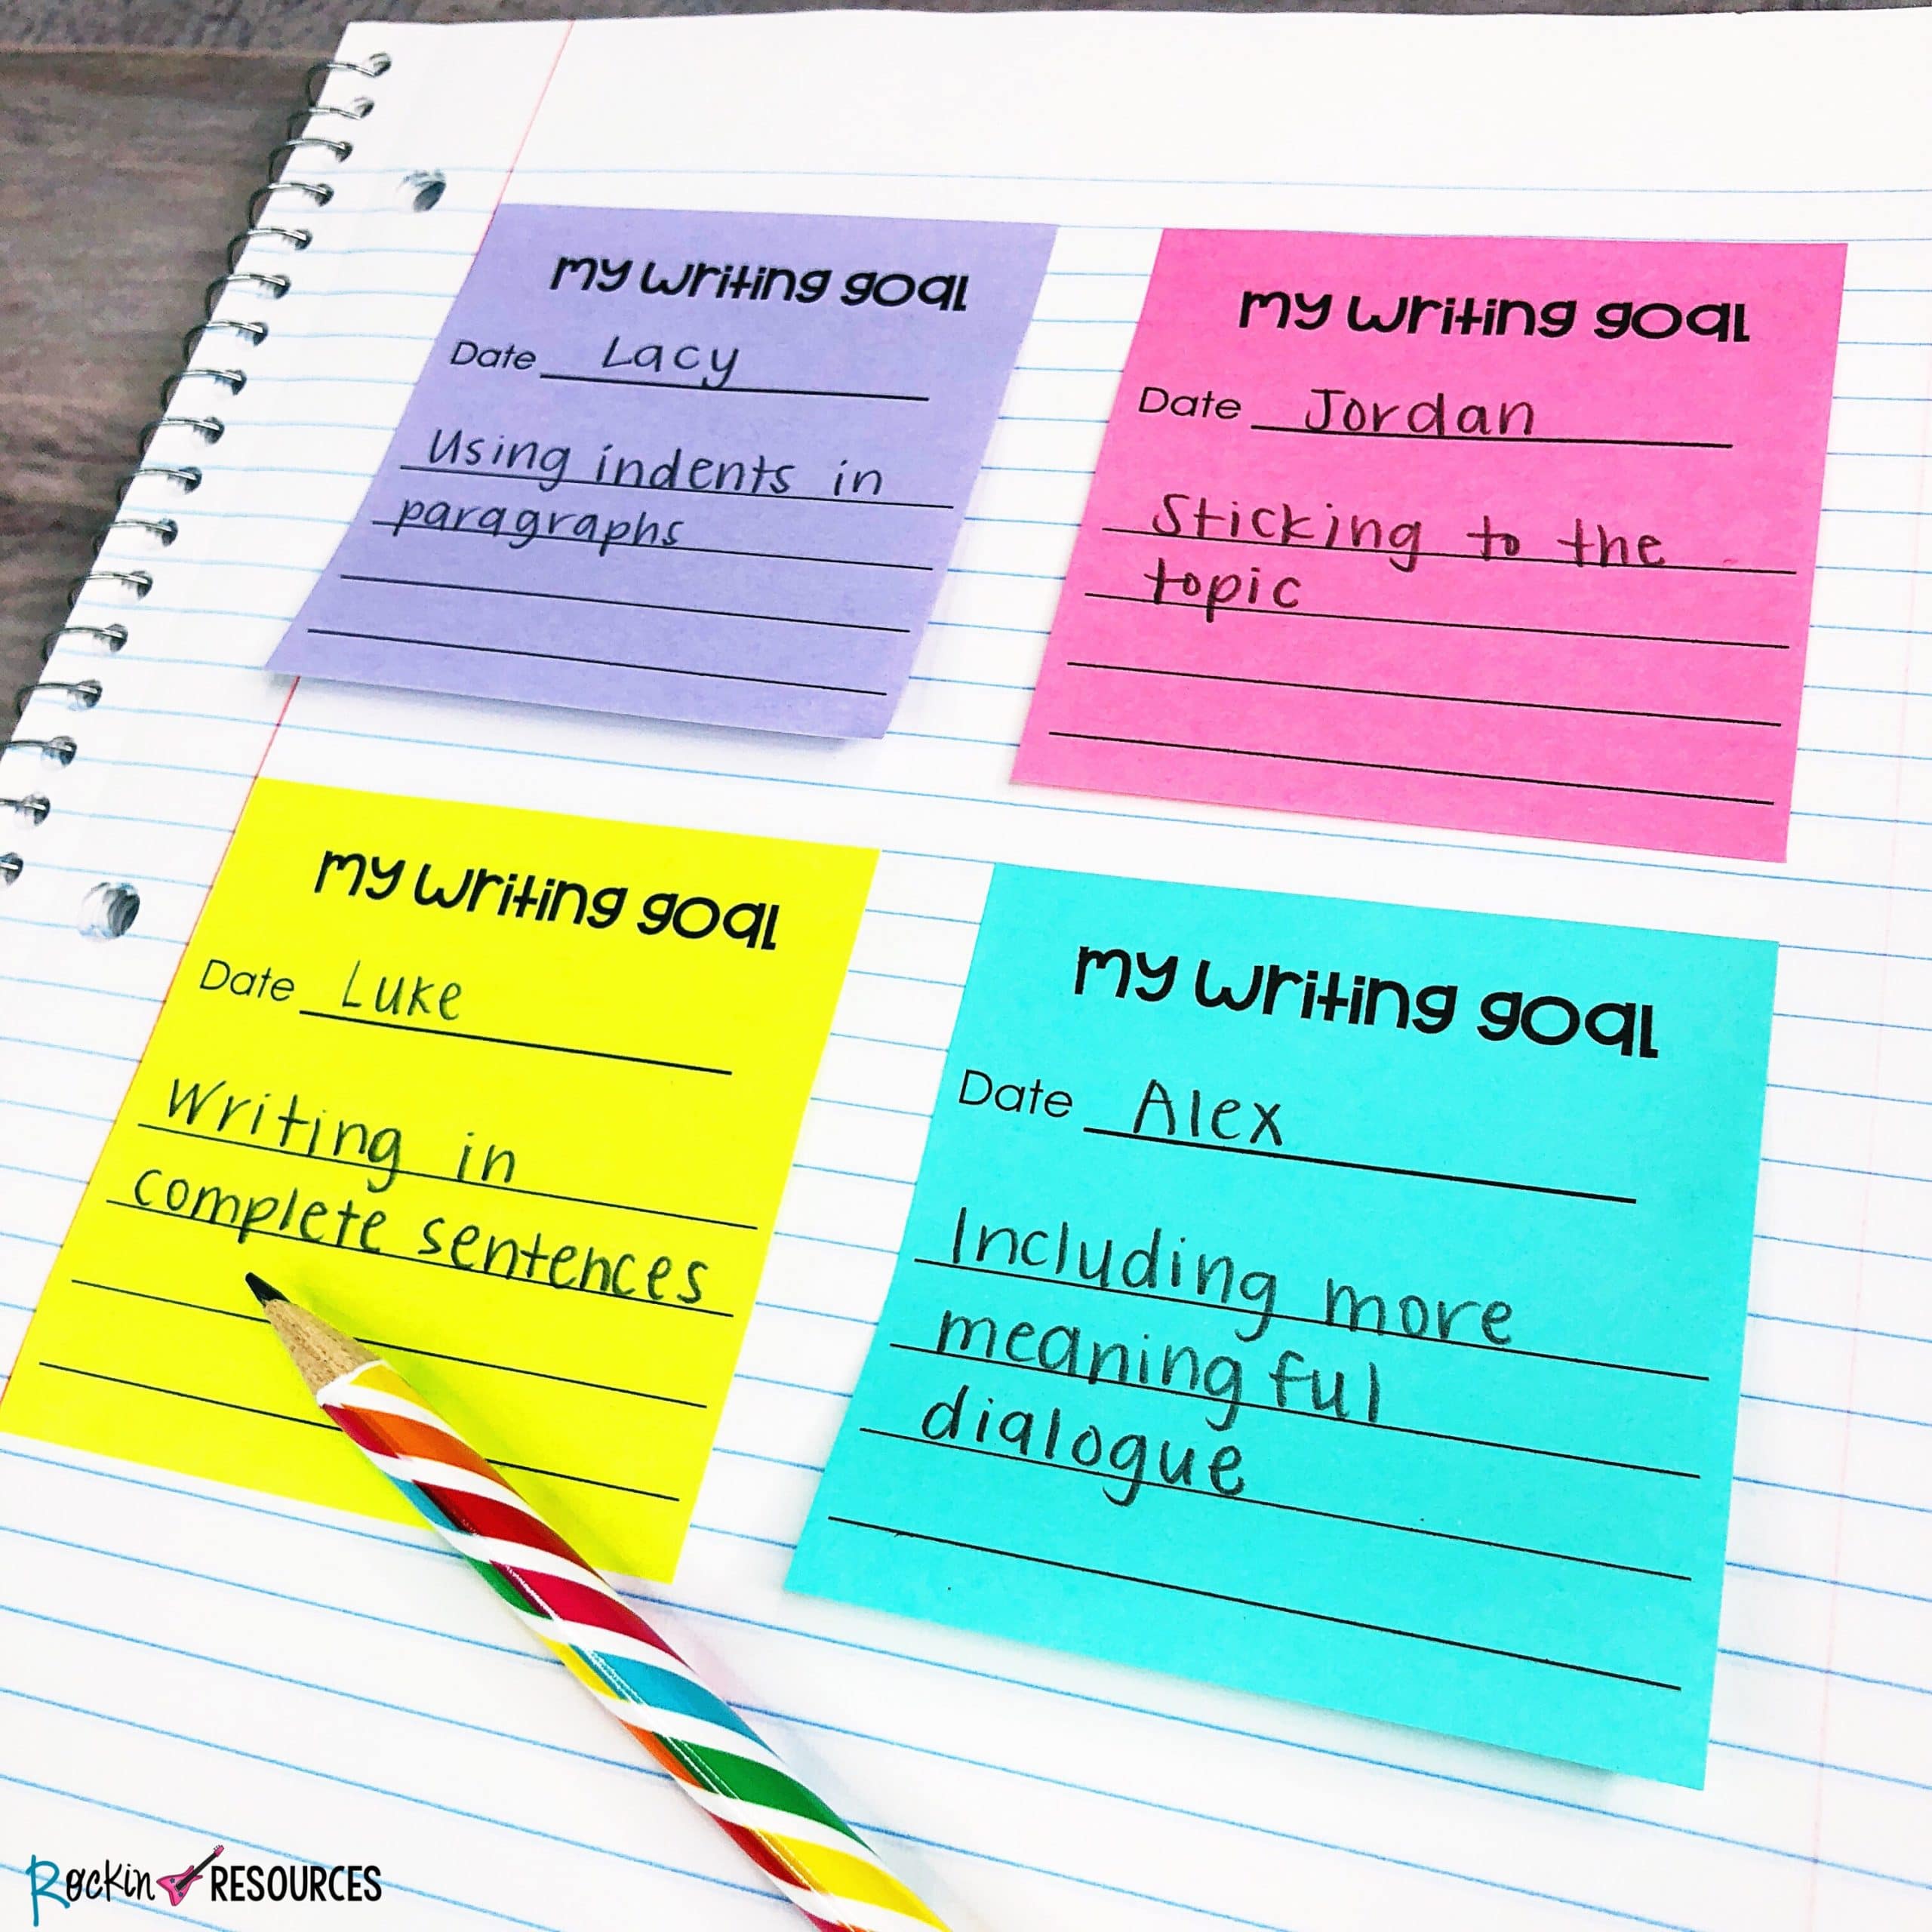 my writing goal
Date Lacy
Using indents in
paragraphs
my writing goal
Date Jordan
Sticking to the
topic
my writing goal
Date Luke
Writing in
complete sentences
my writing goal
Date Alex
Including more
meaningful
dialogue
Rockin RESOURCES